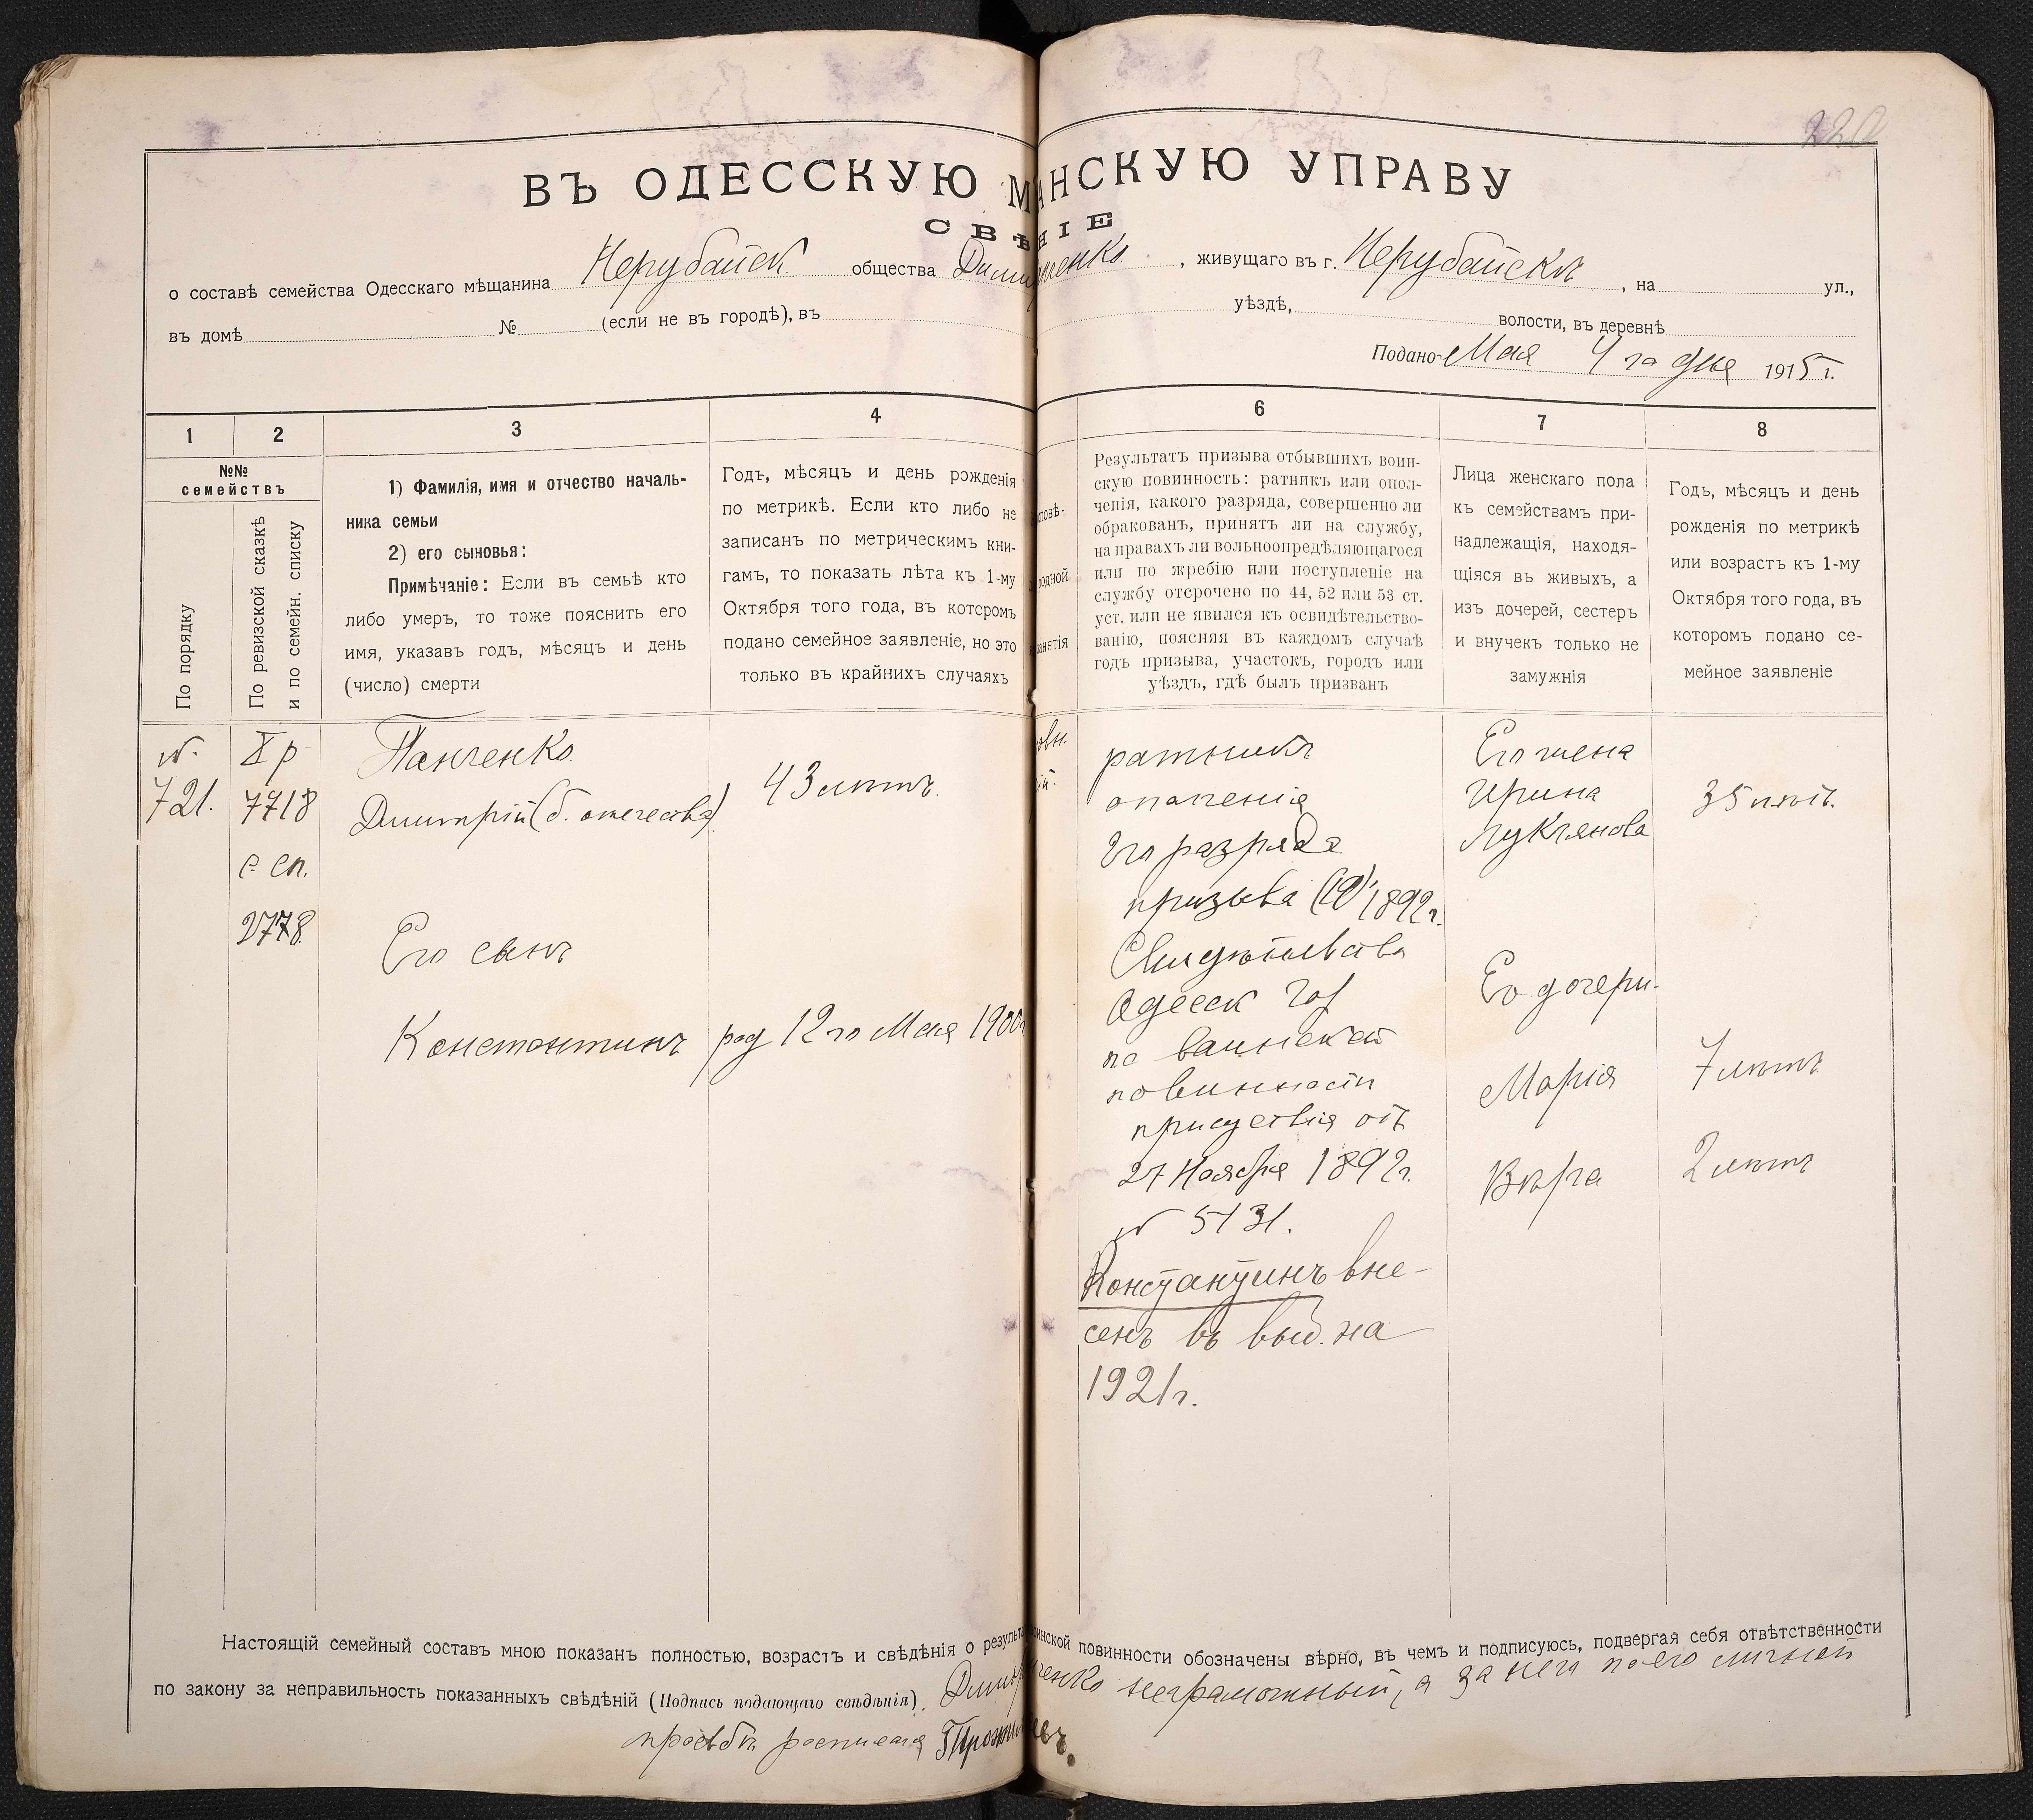 220
ВЪ ОДЕССКУЮ М АНСКУЮ УПРАВУ
СВѢ НІЕ
о составѣ семейства Одесскаго мѣщанина Нерубайск. общества Дими ченко, живущаго въ г. Нерубайскъ, на ул.,
въ домѣ № (если не въ городѣ), въ уѣздѣ, волости, въ деревнѣ
Подано Мая 4 го дня 1915 г.
1
2
3
4
6
7
8
№№
семействъ
По порядку
По ревизской сказкѣ
и по семейн. списку
1) Фамилія, имя и отчество началь-
ника семьи
2) его сыновья:
Примѣчаніе: Если въ семьѣ кто
либо умеръ, то тоже пояснить его
имя, указавъ годъ, мѣсяцъ и день
(число) смерти
Годъ, мѣсяцъ и день рожденія
по метрикѣ. Если кто либо не
записанъ по метрическимъ кни-
гамъ, то показать лѣта къ 1-му
Октября того года, въ которомъ
подано семейное заявленіе, но это
только въ крайнихъ случаяхъ
повѣ-
родной
занятія
Результатъ призыва отбывшихъ воин-
скую повинность: ратникъ или опол-
ченія, какого разряда, совершенно ли
обракованъ, принятъ ли на службу,
на правахъ ли вольноопредѣляющагося
или по жребію или поступленіе на
службу отсрочено по 44, 52 или 53 ст.
уст. или не явился къ освидѣтельство-
ванію, поясняя въ каждомъ случаѣ
годъ призыва, участокъ, городъ или
уѣздъ, гдѣ былъ призванъ
Лица женскаго пола
къ семействамъ при-
надлежащія, находя-
щіяся въ живыхъ, а
изъ дочерей, сестеръ
и внучекъ только не
замужнія
Годъ, мѣсяцъ и день
рожденія по метрикѣ
или возрастъ къ 1-му
Октября того года, въ
которомъ подано се-
мейное заявленіе
№.
721.
X р
7718
с сп.
2778.
Панченко
Димитрій (б. отечества)
Его сынъ
Константинъ
43 лѣтъ.
род 12 го Мая 1900 г
овн.
ій.
ратникъ
ополченія
2го разряда
призыва 1892 г.
Свидѣтельство
Одесск Гор
по воинской
повинности
присуствія отъ
27 Ноября 1892 г.
№ 5131.
Константинъ вне-
сенъ въ выд. на
1921 г.
Его жена
Ирина
Лукьянова
Его дочери.
Марія
Вѣра
35 лѣтъ.
7 лѣтъ
2 лѣтъ
Настоящій семейный составъ мною показанъ полностью, возрастъ и свѣдѣнія о результа инской повинности обозначены вѣрно, въ чемъ и подписуюсь, подвергая себя отвѣтственности
по закону за неправильность показанныхъ свѣдѣній (Подпись подающаго свѣдѣнія). Дими ченко неграмотный, а за него по его личной
просьбѣ росписался